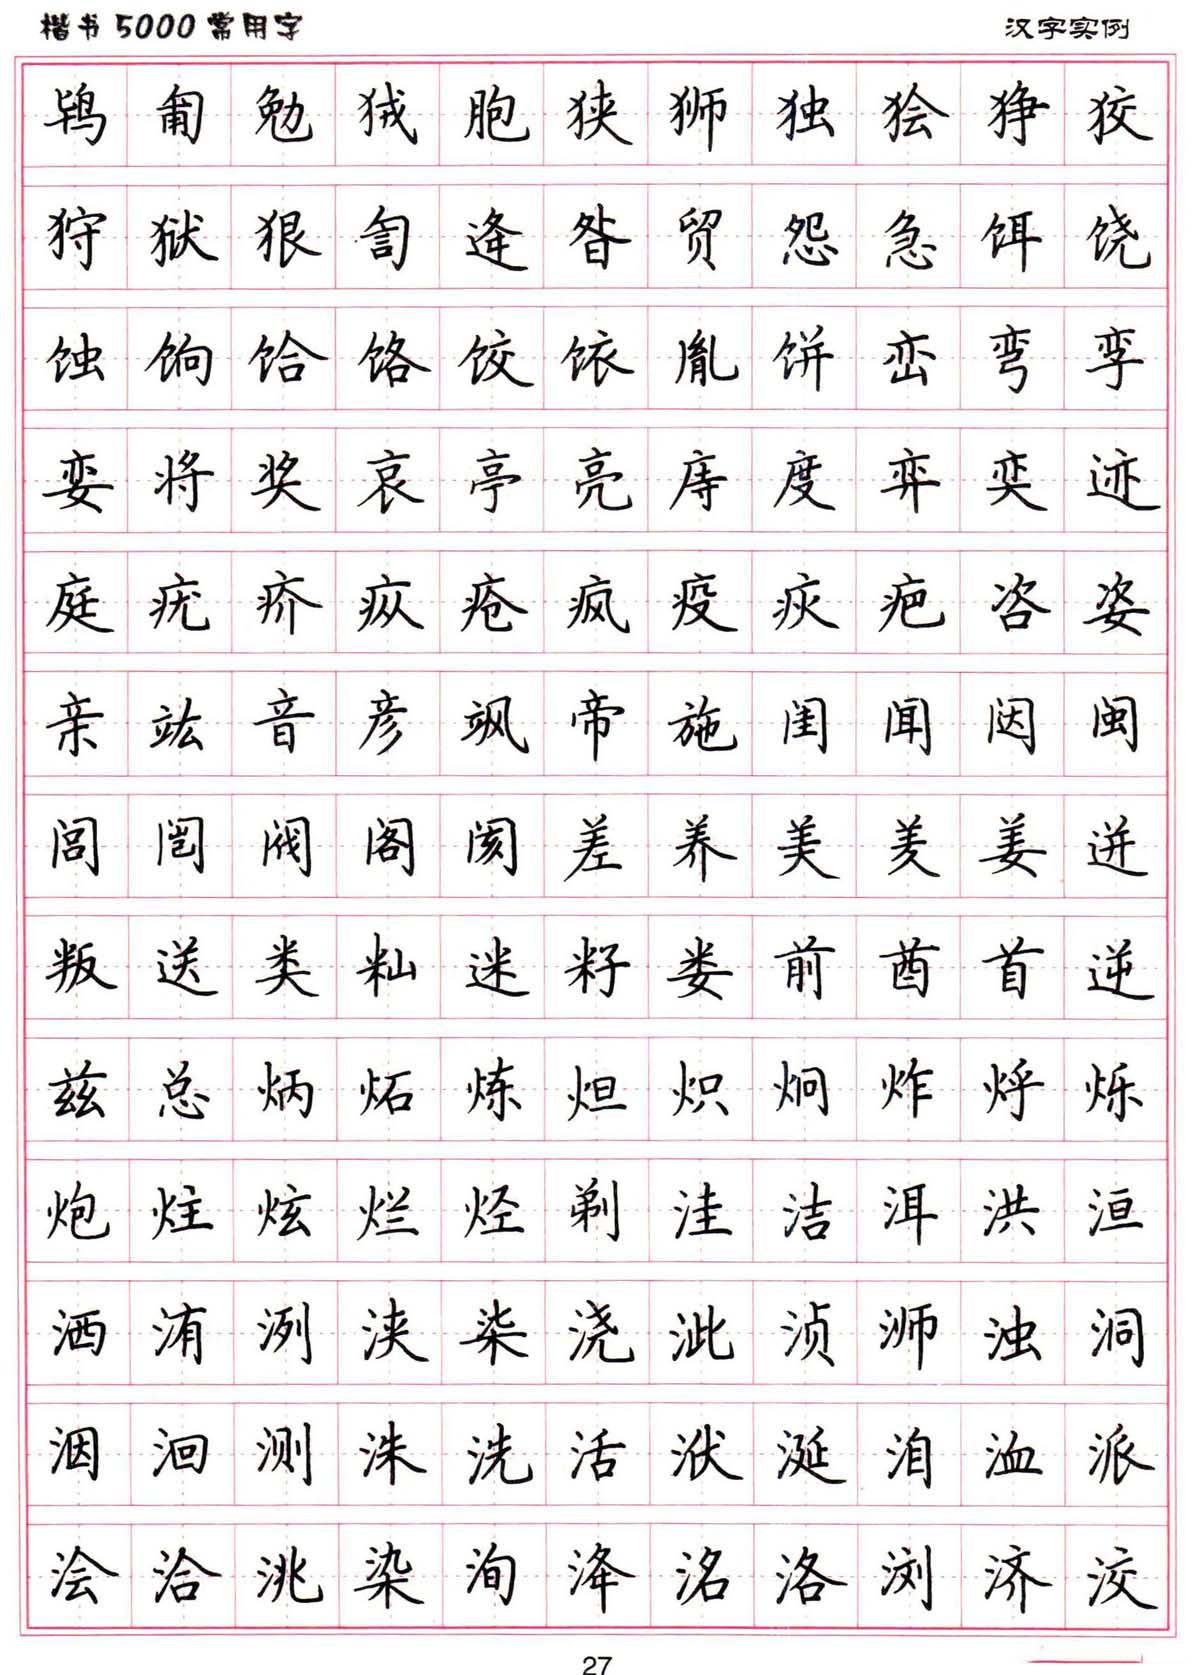 楷书5000常用字
汉字实例
鸨 匍 勉 狨 胞 狭 狮 独 狯 狰 狡
狩 狱 狠 訇 逄 昝 贸 怨 急 饵 饶
蚀 饷 饸 饹 饺 饻 胤 饼 峦 弯 孪
娈 将 奖 哀 亭 亮 庤 度 弈 奕 迹
庭 疣 疥 疭 疮 疯 疫 疢 疤 咨 姿
亲 竑 音 彦 飒 帝 施 闺 闻 闽
闾 闿 阀 阁 阂 差 养 美 羑 姜 迸
叛 送 类 籼 迷 籽 娄 前 酋 首 逆
兹 总 炳 炻 炼 炟 炽 炯 炸 烀 烁
炮 炷 炫 烂 烃 剃 洼 洁 洱 洪 洹
洒 洧 洌 浃 柒 浇 泚 浈 浉 浊 洞
洇 洄 测 洙 洗 活 洑 涎 洎 洫 派
浍 洽 洮 染 洵 洚 洺 洛 浏 济 洨
27